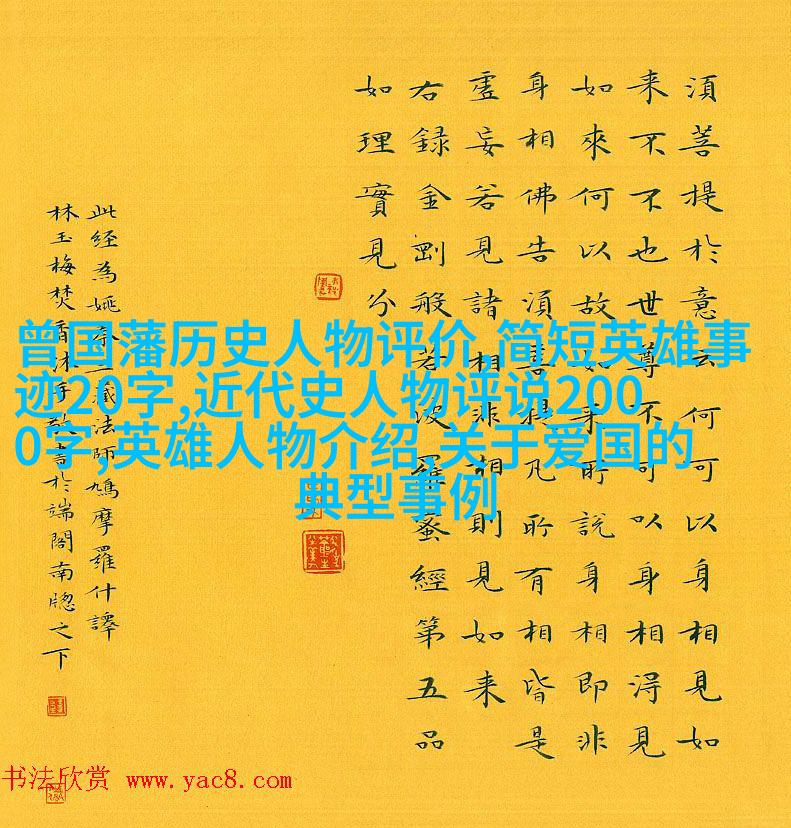 須菩提於意云何可以身相見如
来不不也世尊不可以身相得見
如來何以故如来所說身相即非
身相佛告須菩提凡所有相皆是
虛妄若見諸相非相則見如来
右録金剛般若波羅蜜經第五品
如理實見分
此経為姚秦三藏法師鳩摩羅什譯
林玉梅焚香沐手敬書於端閣南牕之下
曾国藩历史人物评价,简短英雄事
迹20字,近代史人物评说200
0字,英雄人物介绍,关于爱国的
典型事例
书法欣赏 www.yac8.com